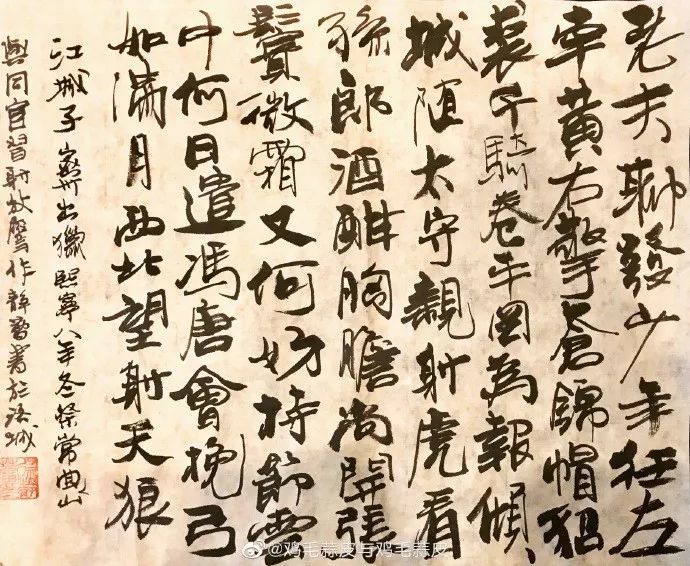 老夫聊發少年狂左
牽黃右擎蒼錦帽貂
裘千騎卷平岡為報傾
城隨太守親射虎看
孫郎酒酣胸膽尚開張
鬢微霜又何妨持節雲
中何日遣馮唐會挽弓
如滿月西北望射天狼
江城子密州出獵熙寧八年冬祭常回山
與同官習射放鷹作於城
@鸡毛蒜皮与鸡毛蒜皮